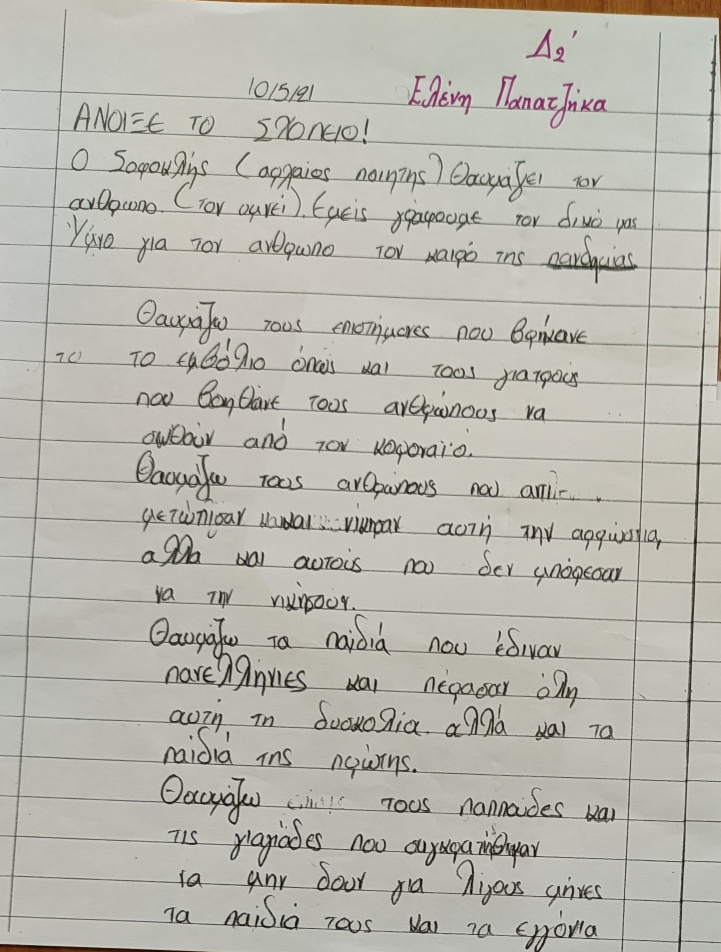 Δ2΄
10/5/21 Ελένη Παπατζήκα
ΑΝΟΙΞΕ ΤΟ ΣΧΟΛΕΙΟ!
Ο Σοφοκλής (αρχαίος ποιητής) Θαυμάζει τον
ανθρωπο (τον υμνεί). Εμείς γράφουμε τον δικό μας
Ύμνο για τον ανθρωπο τον καιρό της πανδημίας
Θαυμάζω τους επιστήμονες που βρήκανε
το το εμβόλιο όπως και τους γιατρούς
που βοηθάνε τους ανθρώπους να
σωθούν από τον κορονοϊό.
Θαυμάζω τους ανθρώπους που αντι-
μετώπισαν και νίκησαν αυτή την αρρώστια,
αλλά και αυτούς που δεν μπόρεσαν
να την νικήσουν.
Θαυμάζω τα παιδιά που έδιναν
πανελλήνιες και πέρασαν όλη
αυτή τη δυσκολία αλλά και τα
παιδιά της πρώτης.
Θαυμάζω τους παππούδες και
τις γιαγιάδες που συγκρατήθηκαν
να μην δουν για λίγους μήνες
τα παιδιά τους και τα εγγόνια